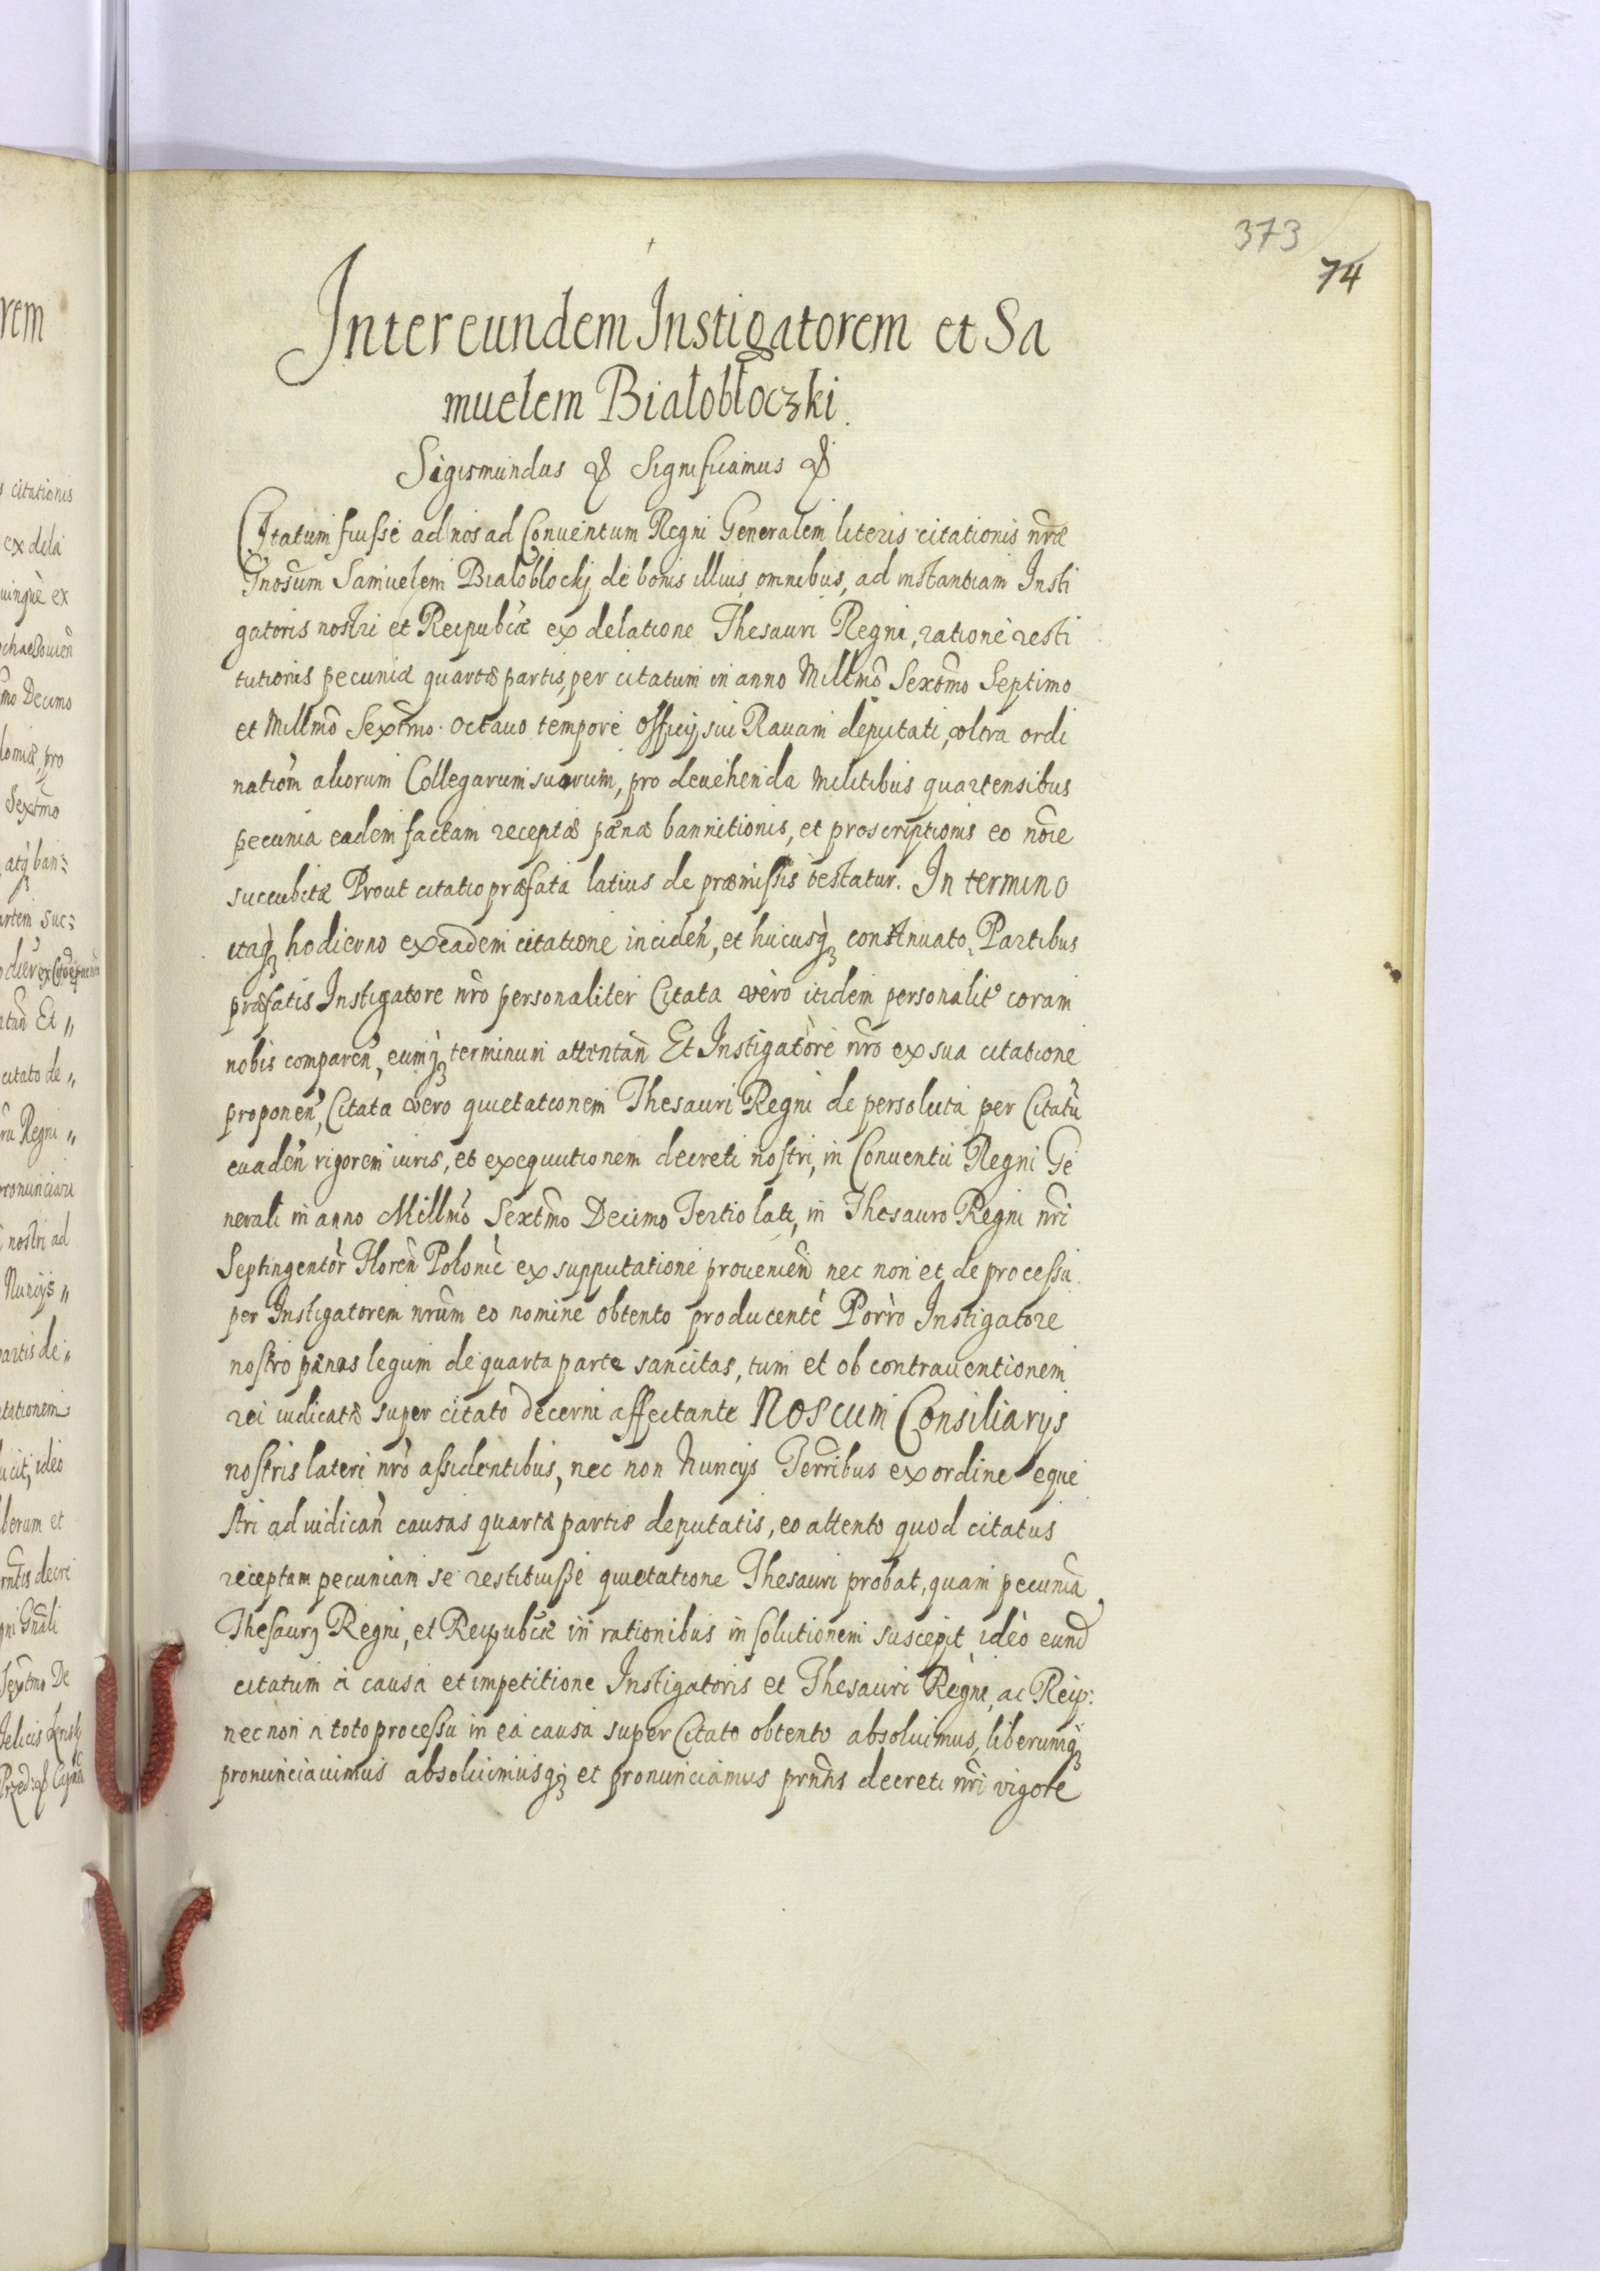 373
74
Inter eundem Instigatorem et Sa
muelem Białobłoczki.
Sigismundus & Significamus &
Citatum fuisse ad nos ad Conuentum Regni Generalem literis citationis nr̃æ
Gnosum Samuelem Białoblockj de bonis illius omnibus, ad instantiam Insti
gatoris nostri et Reipublcæ ex delatione Thesauri Regni, ratione resti
tutionis pecuniæ quartæ partis, per citatum in anno Millmo Sextmo Septimo
et Millmo Sextmo Octauo tempore officij sui Rauam deputati, ultra ordi
nationem aliorum Collegarum suorum, pro deuehenda Militibus quartensibus
pecunia eadem factam receptæ pænæ bannitionis, et proscriptionis eo noie
succubitæ Prout citatio præfata latius de præmissis testatur. In termino
itaqꝫ hodierno ex eadem citatione inciden̄, et hucusqꝫ continuato, Partibus
præfatis Instigatore nr̃o personaliter Citata vero itidem personalitr coram
nobis comparen̄, eumqꝫ terminum attentan̄ Et Instigatore nr̃o ex sua citatione
proponen̄, Citata vero quietationem Thesauri Regni de persoluta per Citatū
euaden̄ rigorem iuris, et exequutionem decreti nostri, in Conuentu Regni Ge
nerali in anno Millmo Sextmo Decimo Tertio lati, in Thesauro Regni nr̃i
Septingentor Floren̄ Polonic ex supputatione prouenien̄ nec non et de processu
per Instigatorem nrum eo nomine obtento producente Porro Instigatore
nostro pænas legum de quarta parte sancitas, tum et ob contrauentionem
rei iudicatæ super citato decerni affectante Nos cum Consiliarys
nostris lateri nr̃o assidentibus, nec non Nuncys Terribus ex ordine eque
stri ad iudican̄ causas quartæ partis deputatis, eo attento quod citatus
receptam pecuniam se restituisse quietatione Thesauri probat, quam pecuniā
Thesaurꝫ Regni, et Reipublcæ in rationibus in solutionem suscepit ideo eund
citatum a causa et impetitione Instigatoris et Thesauri Regni, ac Reip:
nec non a toto processu in ea causa super Citato obtento absoluimus, liberumqꝫ
pronunciauimus absoluimusqꝫ et pronunciamus prntis decreti nr̃i vigore